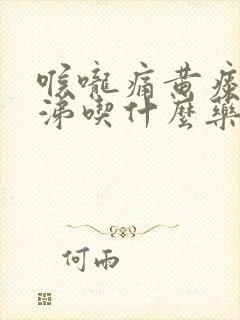 喉嚨痛黄痰
涕喫什麼藥
何雨